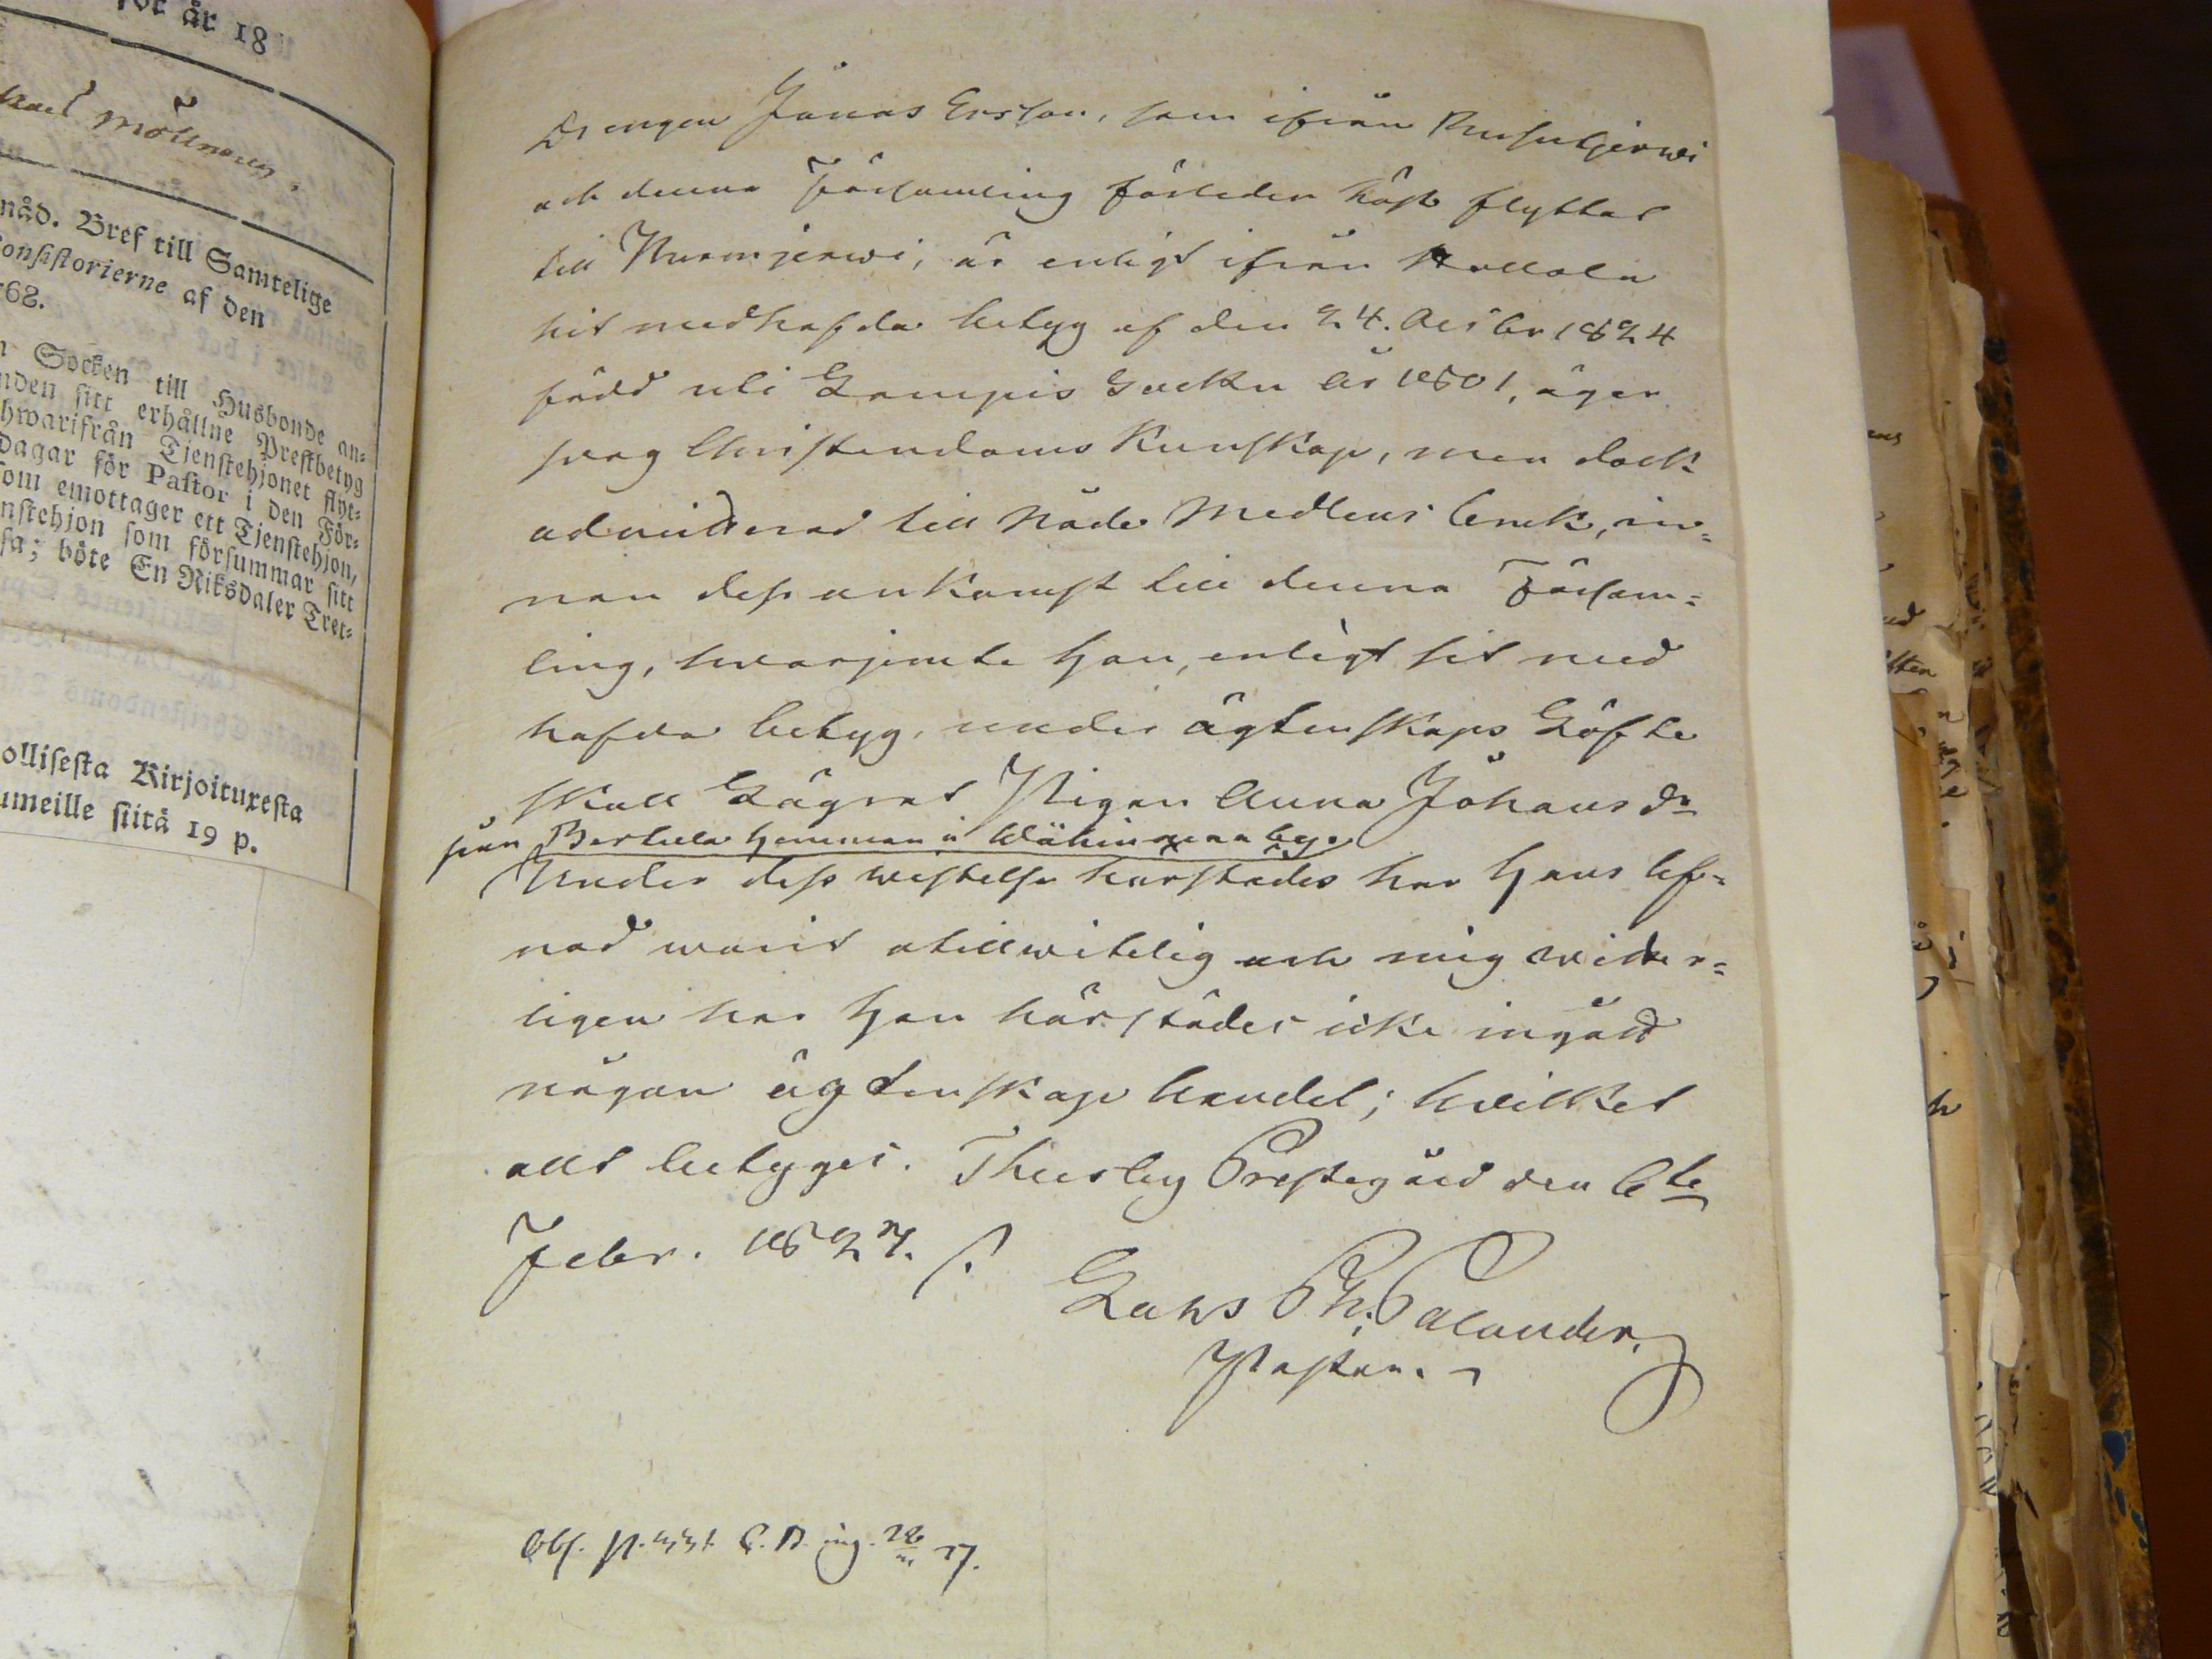 för år 18
möllnare,
nåd. Bref till Samtelige
onsistorierne af den
68.
Socken till Husbonde an=
nden sitt erhållne Prestbetyg
hwarifrån Tjenstehjonet flyt=
dagar för Pastor i den För=
om emottager ett Tjenstehjon,
nstehjon som försummar sitt
sa; böte En Riksdaler Tret=
ollisesta Kirjoituxesta
umeille siitä 19 p.
Drengen Jonas Ersson, som ifrån Rusutjerwi
och denna Församling förleden höst flyttat
till Nurmjerwi, är enligt ifrån Hollola
hit medhafda betyg af den 24. Octbr 1824
född uti Lampis Sockn År 1801, äger
swag Christendoms Kunskap, men dock
admitterad till Nåde Medlens bruk, in=
nan dess ankomst till denna Försam=
ling, hwarjemte han, enligt hit med
hafda betyg, under ägtenskaps Löfte
skall Lägrat Pigan Anna Johansdr
från Bertula hemman i Wähinomaa by.
Under dess wistelse härstädes har hans lef=
nad warit otillwitelig och mig weter=
ligen har han härstädes icke ingådt
någon ägtenskaps handel; hwilket
allt betygas. Thusby Prestegård den 6te
Febr. 1827.
Lars Ph. Palander,
Pastor.